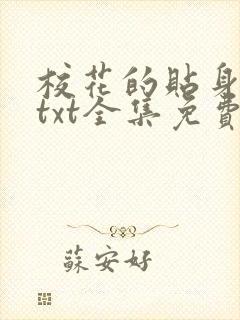 校花的貼身
txt全集免費
蘇安好